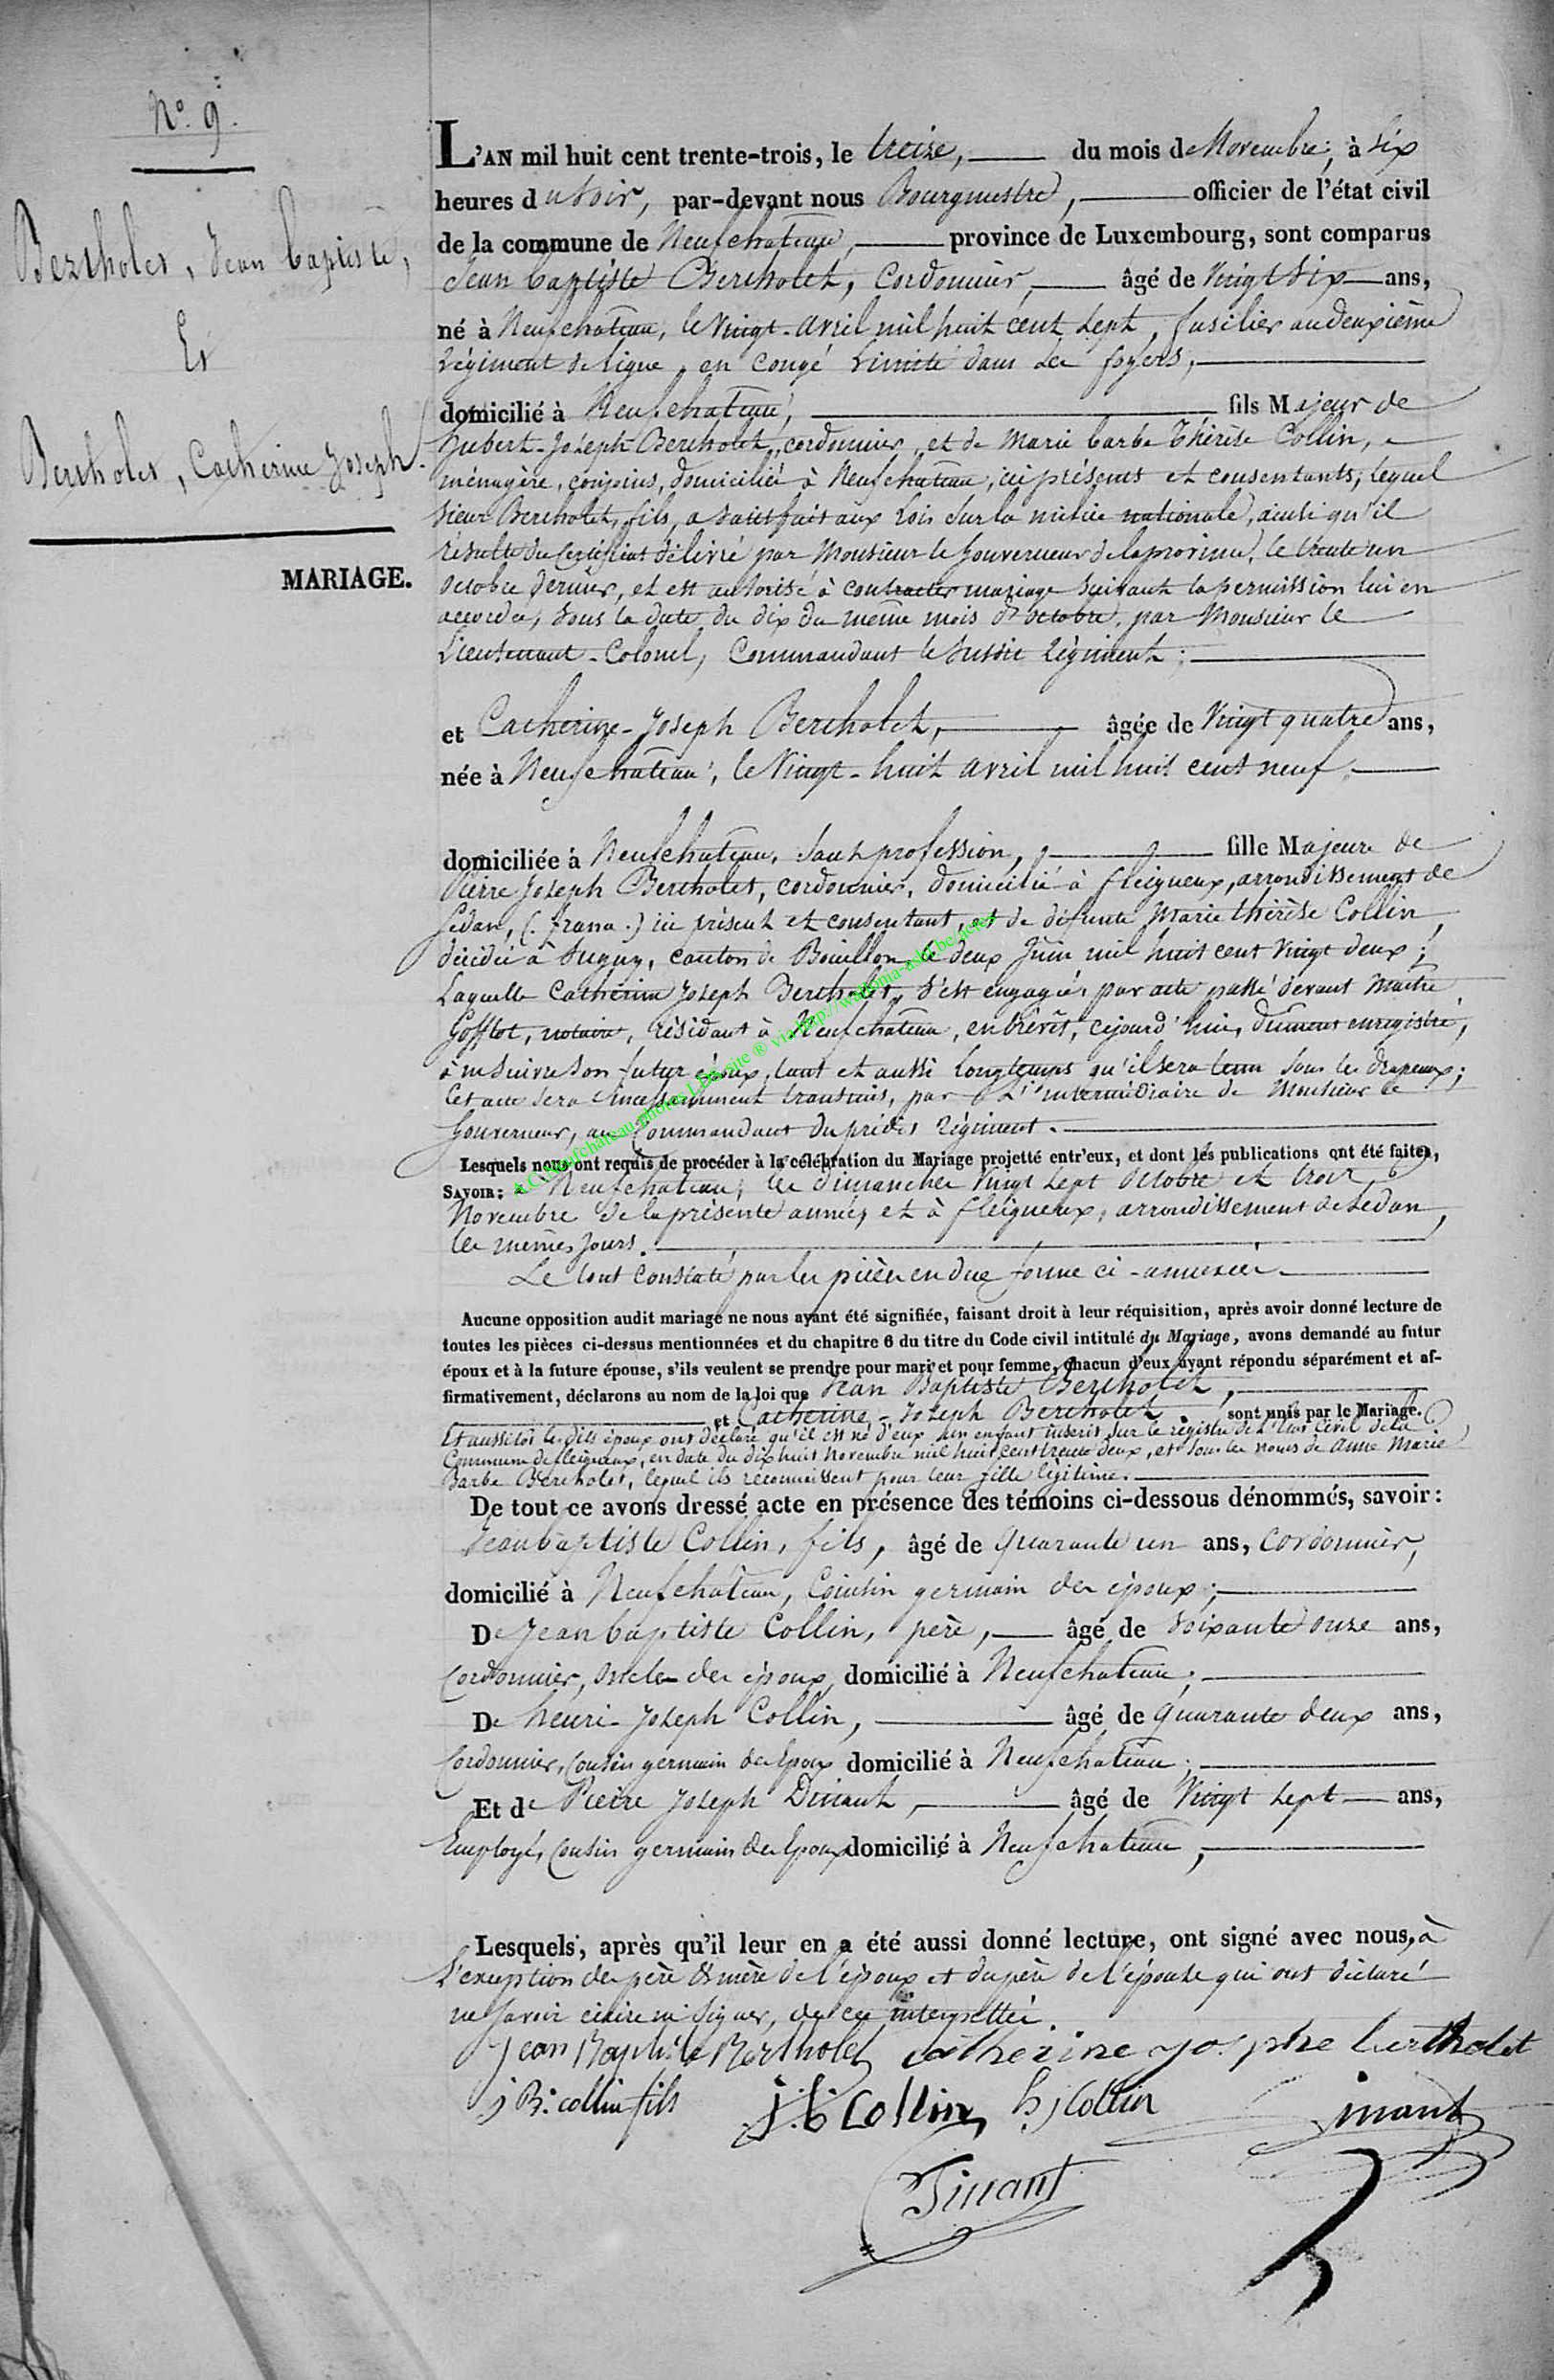 N.° 9.
Bertholet, Jean baptiste,
Et
Bertholet, Catherine Joseph.
MARIAGE.
L'AN mil huit cent trente-trois, le treize, du mois de Novembre, à Six
heures du Soir, par-devant nous Bourgmestre, officier de l'état civil
de la commune de Neufchateau, province de Luxembourg, sont comparus
Jean baptiste Bertholet, Cordonnier, âgé de Vingt Six ans,
né à Neufchateau, le Vingt-avril mil huit cent Sept, fusilier au deuxième
Régiment de ligne, en congé limité dans Ses foyers,
domicilié à Neufchateau, fils Majeur de
Hubert-Joseph Bertholet, cordonnier, et de Marie barbe Thérèse Collin,
ménagère, conjoins, domiciliés à Neufchateau, ici présents et consentants; lequel
Sieur Bertholet, fils, a Satisfait aux Lois Sur la milice nationale, ainsi qu'il
résulte du Certificat délivré par Monsieur le Gouverneur de la province, le trente un
octobre dernier, et est autorisé à contracter mariage Suivant la permission lui en
accordée, Sous la date du dix du même mois d'octobre, par Monsieur le
Lieutenant-Colonel, Commandant le Susdit Régiment;
et Catherine-Joseph Bertholet, âgée de Vingt quatre ans,
née à Neufchateau, le Vingt-huit avril mil huit cent neuf,
domiciliée à Neufchateau, Sans profession, fille Majeure de
Pierre Joseph Bertholet, cordonnier, domicilié à fleigneux, arrondissement de
Sedan, (france) ici présent et consentant, et de défunte Marie thérèse Collin,
décédée à Sugny, canton de Bouillon, le deux Juin mil huit cent vingt deux;
Laquelle Catherine Joseph Bertholet, S'est engagée, par acte passé devant Maitre
Gofflot, notaire, résidant à Neufchateau, en brévêt, cejourd'hui, dûment enregistré,
à Suivre Son futur époux, tant et aussi longtemps qu'il Sera Sous les drapeaux;
Cet acte Sera incessamment transmis, par L'intermédiaire de Monsieur le
Gouverneur, au Commandant du prédit Régiment.
Lesquels nous ont requis de procéder à la célébration du Mariage projetté entr'eux, et dont les publications ont été faites,
SAVOIR: à Neufchateau, les dimanches Vingt Sept Octobre et trois
Novembre de la présente année, et à fleigneux, arrondissement de Sedan,
les mêmes Jours.
Le tout constaté par les pièces en due forme ci-annexées.
Aucune opposition audit mariage ne nous ayant été signifiée, faisant droit à leur réquisition, après avoir donné lecture de
toutes les pièces ci-dessus mentionnées et du chapitre 6 du titre du Code civil intitulé du Mariage, avons demandé au futur
époux et à la future épouse, s'ils veulent se prendre pour mari et pour femme, chacun d'eux ayant répondu séparément et af-
firmativement, déclarons au nom de la loi que Jean Baptiste Bertholet,
et Catherine-Joseph Bertholet sont unis par le Mariage.
Et aussitôt les dits époux ont déclaré qu'il est né d'eux un enfant inscrit Sur le registre de l'Etat Civil de la
Commune de fleigneux, en date du dix huit novembre mil huit cent trente deux, et Sous les noms de Anne Marie
Barbe Bertholet, lequel ils reconnoissent pour leur fille légitime.
De tout ce avons dressé acte en présence des témoins ci-dessous dénommés, savoir:
Jean baptiste Collin, fils, âgé de quarante un ans, cordonnier,
domicilié à Neufchateau, Cousin germain des époux;
De Jean baptiste Collin, père, âgé de Soixante onze ans,
Cordonnier, oncle des époux, domicilié à Neufchateau;
De henri-Joseph Collin, âgé de quarante deux ans,
Cordonnier, Cousin germain des Epoux domicilié à Neufchateau;
Et de Pierre Joseph Dinant, âgé de Vingt Sept ans,
Employé, Cousin germain des Epoux domicilié à Neufchateau,
Lesquels, après qu'il leur en a été aussi donné lecture, ont signé avec nous, à
L'exception des père & mère de l'époux et du père de l'épouse qui ont déclaré
ne Savoir écrire ni Signer, de ce interpellés.
Jean Baptiste Bertholet catherine josphe bertholet
j B. collin fils j. b Collin h j Collin Dinant
Tinant
A.C. Neufchâteau photos LDS site ® via http://wallonia-asbl.be/actes